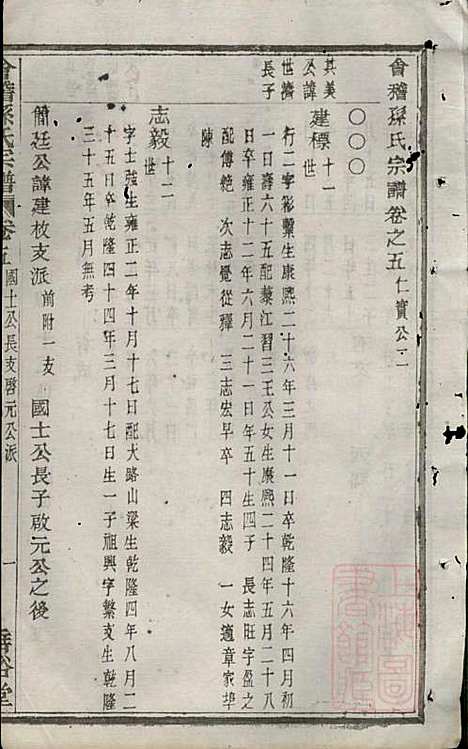 會稽孫氏宗譜卷之五 仁實公二
〇〇〇
其美
公諱
世濟
長子
建標 十一世
行二字彩繁生康熙二十六年三月十一日卒乾隆十六年四月初
一日壽六十五配蓁江習三王公女生康熙二十四年五月二十八
日卒雍正十二年六月二十一日年五十生四子 長志旺字盈之
配傅絶 次志覺從釋 三志宏早卒 四志毅 一女適章家埠
陳
志毅 十二世
字士強生雍正二年十月十七日配大路山梁生乾隆四年八月二
十五日卒乾隆四十四年三月十七日生一子祖興字繁支生乾隆
三十五年五月無考
簡廷公諱建枚支派 前附一支 國士公長子啟元公之後
會稽孫氏宗譜 卷五 國士公長支啓元公派 一 垂裕堂